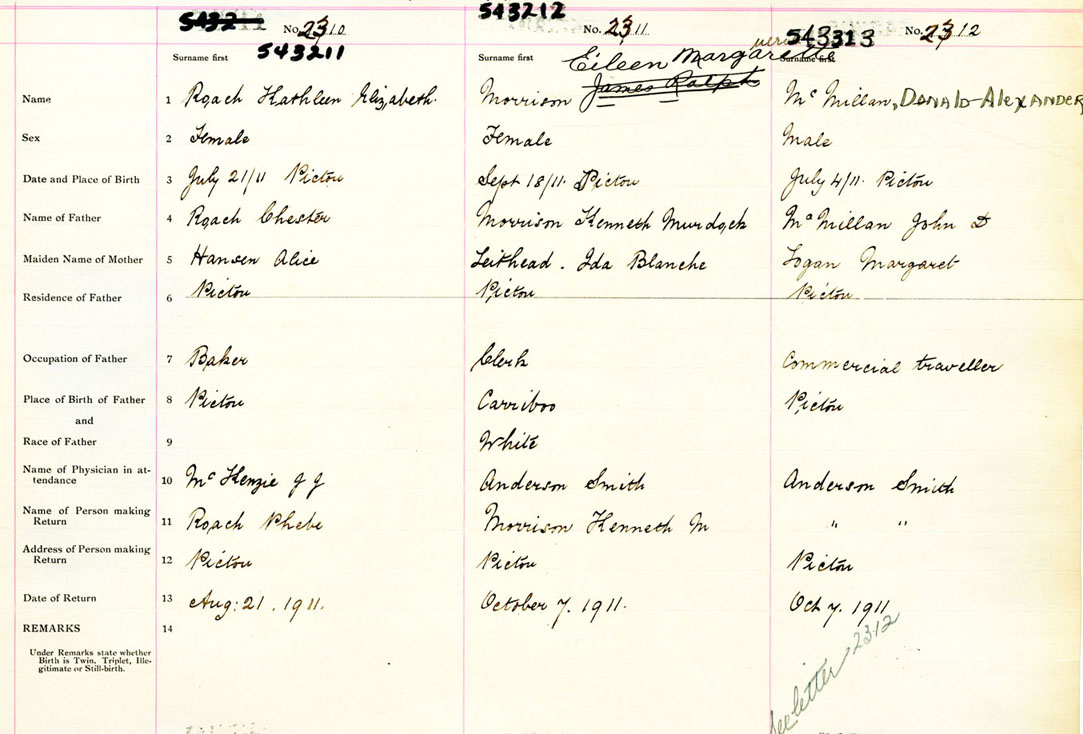 543212
No. 2310
543211
No. 2311
543313
No. 2312
Surname first
Surname first Eileen Margarette
Surname first
Name 1 Roach Kathleen Elizabeth. Morrison James Ralph McMillan, DONALD-AlEXANDER
Sex 2 Female Female Male
Date and Place of Birth 3 July 21/11 Pictou Sept 18/11. Pictou July 4/11. Pictou
Name of Father 4 Roach Chester Morrison Kenneth Murdock McMillan John D
Maiden Name of Mother 5 Hansen Alice Leithead. Ida Blanche Logan Margaret
Residence of Father 6 Pictou Pictou Pictou
Occupation of Father 7 Baker Clerk Commercial traveller
Place of Birth of Father 8 Pictou Carriboo Pictou
and
Race of Father 9 White
Name of Physician in at-
tendance 10 McKenzie J J Anderson Smith Anderson Smith
Name of Person making
Return 11 Roach Phebe Morrison Kenneth M " "
Address of Person making
Return 12 Pictou Pictou Pictou
Date of Return 13 Aug: 21. 1911. October 7. 1911. Oct 7. 1911
REMARKS 14
Under Remarks state whether
Birth is Twin, Triplet, Ille-
gitimate or Still-birth.
See letter 2312